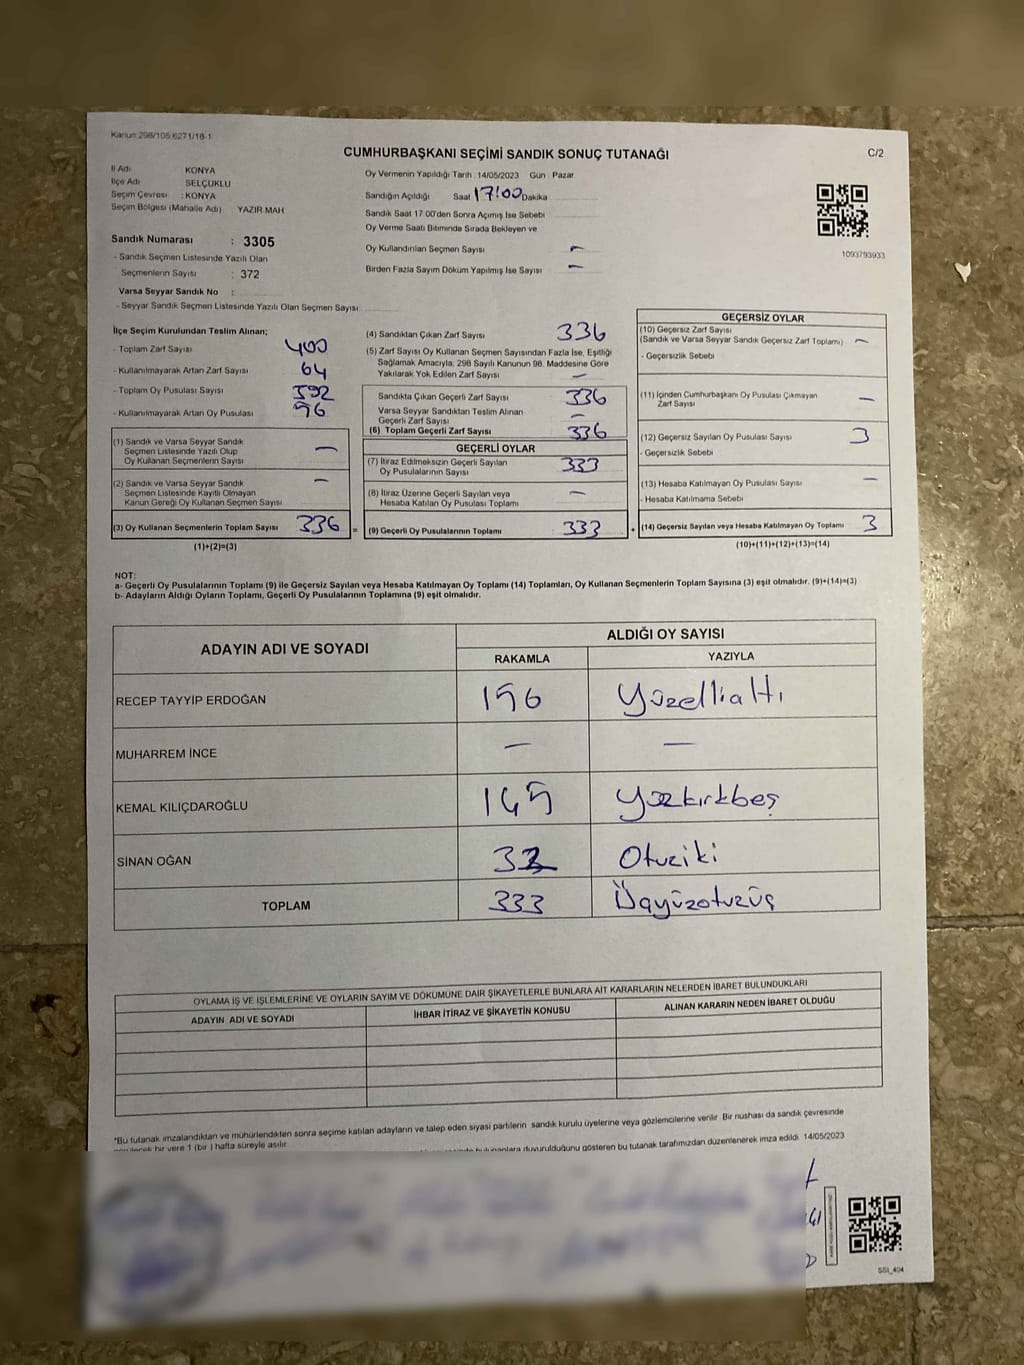 Kanun:298/105:6271/18-1
CUMHURBAŞKANI SEÇİMİ SANDIK SONUÇ TUTANAĞI
C/2
İl Adı : KONYA
İlçe Adı : SELÇUKLU
Seçim Çevresi : KONYA
Seçim Bölgesi (Mahalle Adı) YAZIR MAH
Sandık Numarası : 3305
- Sandık Seçmen Listesinde Yazılı Olan
Seçmenlerin Sayısı : 372
Varsa Seyyar Sandık No :
- Seyyar Sandık Seçmen Listesinde Yazılı Olan Seçmen Sayısı:
Oy Vermenin Yapıldığı Tarih : 14/05/2023 Gün Pazar
Sandığın Açıldığı Saat 17:00 Dakika
Sandık Saat 17.00'den Sonra Açımış İse Sebebi
Oy Verme Saati Bitiminde Sırada Bekleyen ve
Oy Kullandırılan Seçmen Sayısı -
Birden Fazla Sayım Döküm Yapılmış İse Sayısı -
1093793933
İlçe Seçim Kurulundan Teslim Alınan;
- Toplam Zarf Sayısı 400
- Kullanılmayarak Artan Zarf Sayısı 64
- Toplam Oy Pusulası Sayısı 392
- Kullanılmayarak Artan Oy Pusulası 56
(1) Sandık ve Varsa Seyyar Sandık
Seçmen Listesinde Yazılı Olup
Oy Kullanan Seçmenlerin Sayısı -
(2) Sandık ve Varsa Seyyar Sandık
Seçmen Listesinde Kayıtlı Olmayan
Kanun Gereği Oy Kullanan Seçmen Sayısı -
(3) Oy Kullanan Seçmenlerin Toplam Sayısı 336 =
(1)+(2)=(3)
(4) Sandıktan Çıkan Zarf Sayısı 336
(5) Zarf Sayısı Oy Kullanan Seçmen Sayısından Fazla İse, Eşitliği
Sağlamak Amacıyla, 298 Sayılı Kanunun 98. Maddesine Göre
Yakılarak Yok Edilen Zarf Sayısı -
Sandıkta Çıkan Geçerli Zarf Sayısı 336
Varsa Seyyar Sandıktan Teslim Alınan
Geçerli Zarf Sayısı -
(6) Toplam Geçerli Zarf Sayısı 336
GEÇERLİ OYLAR
(7) İtiraz Edilmeksizin Geçerli Sayılan
Oy Pusulalarının Sayısı 333
(8) İtiraz Üzerine Geçerli Sayılan veya
Hesaba Katılan Oy Pusulası Toplamı -
(9) Geçerli Oy Pusulalarının Toplamı 333 +
GEÇERSİZ OYLAR
(10) Geçersiz Zarf Sayısı
(Sandık ve Varsa Seyyar Sandık Geçersiz Zarf Toplamı) -
- Geçersizlik Sebebi
(11) İçinden Cumhurbaşkanı Oy Pusulası Çıkmayan
Zarf Sayısı -
(12) Geçersiz Sayılan Oy Pusulası Sayısı 3
- Geçersizlik Sebebi
(13) Hesaba Katılmayan Oy Pusulası Sayısı -
- Hesaba Katılmama Sebebi
(14) Geçersiz Sayılan veya Hesaba Katılmayan Oy Toplamı 3
(10)+(11)+(12)+(13)=(14)
NOT:
a- Geçerli Oy Pusulalarının Toplamı (9) ile Geçersiz Sayılan veya Hesaba Katılmayan Oy Toplamı (14) Toplamları, Oy Kullanan Seçmenlerin Toplam Sayısına (3) eşit olmalıdır. (9)+(14)=(3)
b- Adayların Aldığı Oyların Toplamı, Geçerli Oy Pusulalarının Toplamına (9) eşit olmalıdır.
ADAYIN ADI VE SOYADI
ALDIĞI OY SAYISI
RAKAMLA YAZIYLA
RECEP TAYYİP ERDOĞAN 156 Yüzellialtı
MUHARREM İNCE - -
KEMAL KILIÇDAROĞLU 145 Yüzkırkbeş
SİNAN OĞAN 32 Otuziki
TOPLAM 333 Üçyüzotuzüç
OYLAMA İŞ VE İŞLEMLERİNE VE OYLARIN SAYIM VE DÖKÜMÜNE DAİR ŞİKAYETLERLE BUNLARA AİT KARARLARIN NELERDEN İBARET BULUNDUKLARI
ADAYIN ADI VE SOYADI İHBAR İTİRAZ VE ŞİKAYETİN KONUSU ALINAN KARARIN NEDEN İBARET OLDUĞU
*Bu tutanak imzalandıktan ve mühürlendikten sonra seçime katılan adayların ve talep eden siyasi partilerin sandık kurulu üyelerine veya gözlemcilerine verilir. Bir nüshası da sandık çevresinde
bir yere 1 (bir ) hafta süreyle asılır.
duyurulduğunu gösteren bu tutanak tarafımızdan düzenlenerek imza edildi. 14/05/2023
SSI_404